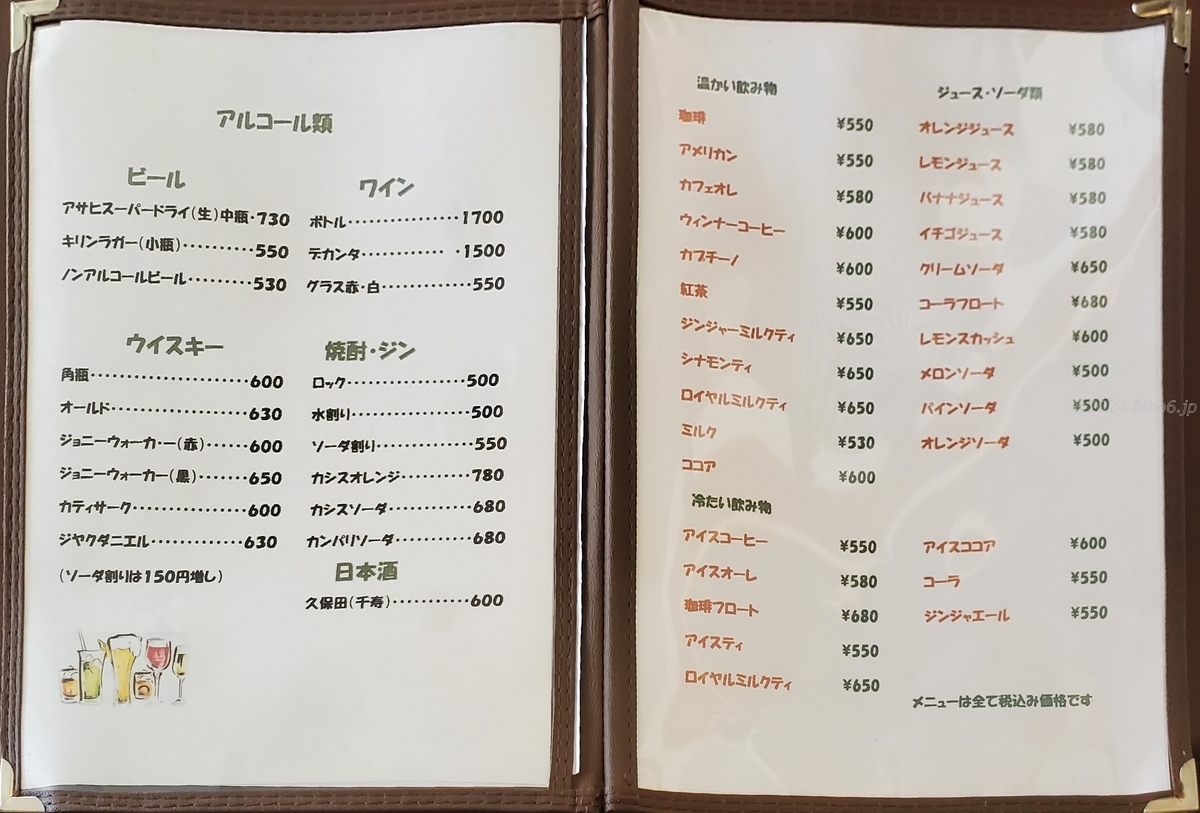 アルコール類
ビール
アサヒスーパードライ(生)中瓶・730
キリンラガー(小瓶)··········550
ノンアルコールビール·········530
ワイン
ボトル················1700
デカンタ············ ·1500
グラス赤・白············550
ウイスキー
角瓶······················600
オールド···················630
ジョニーウォーカー(赤)······600
ジョニーウォーカー(黒)······650
カティサーク················600
ジヤクダニエル·············630
(ソーダ割りは150円増し)
焼酎・ジン
ロック·················500
水割り·················500
ソーダ割り·············550
カシスオレンジ··········780
カシスソーダ············680
カンパリソーダ···········680
日本酒
久保田(千寿)···········600
温かい飲み物
珈琲 ¥550
アメリカン ¥550
カフェオレ ¥580
ウィンナーコーヒー ¥600
カプチーノ ¥600
紅茶 ¥550
ジンジャーミルクティ ¥650
シナモンティ ¥650
ロイヤルミルクティ ¥650
ミルク ¥530
ココア ¥600
ジュース・ソーダ類
オレンジジュース ¥580
レモンジュース ¥580
バナナジュース ¥580
イチゴジュース ¥580
クリームソーダ ¥650
コーラフロート ¥680
レモンスカッシュ ¥600
メロンソーダ ¥500
パインソーダ ¥500
オレンジソーダ ¥500
冷たい飲み物
アイスコーヒー ¥550
アイスオーレ ¥580
珈琲フロート ¥680
アイスティ ¥550
ロイヤルミルクティ ¥650
アイスココア ¥600
コーラ ¥550
ジンジャエール ¥550
メニューは全て税込み価格です